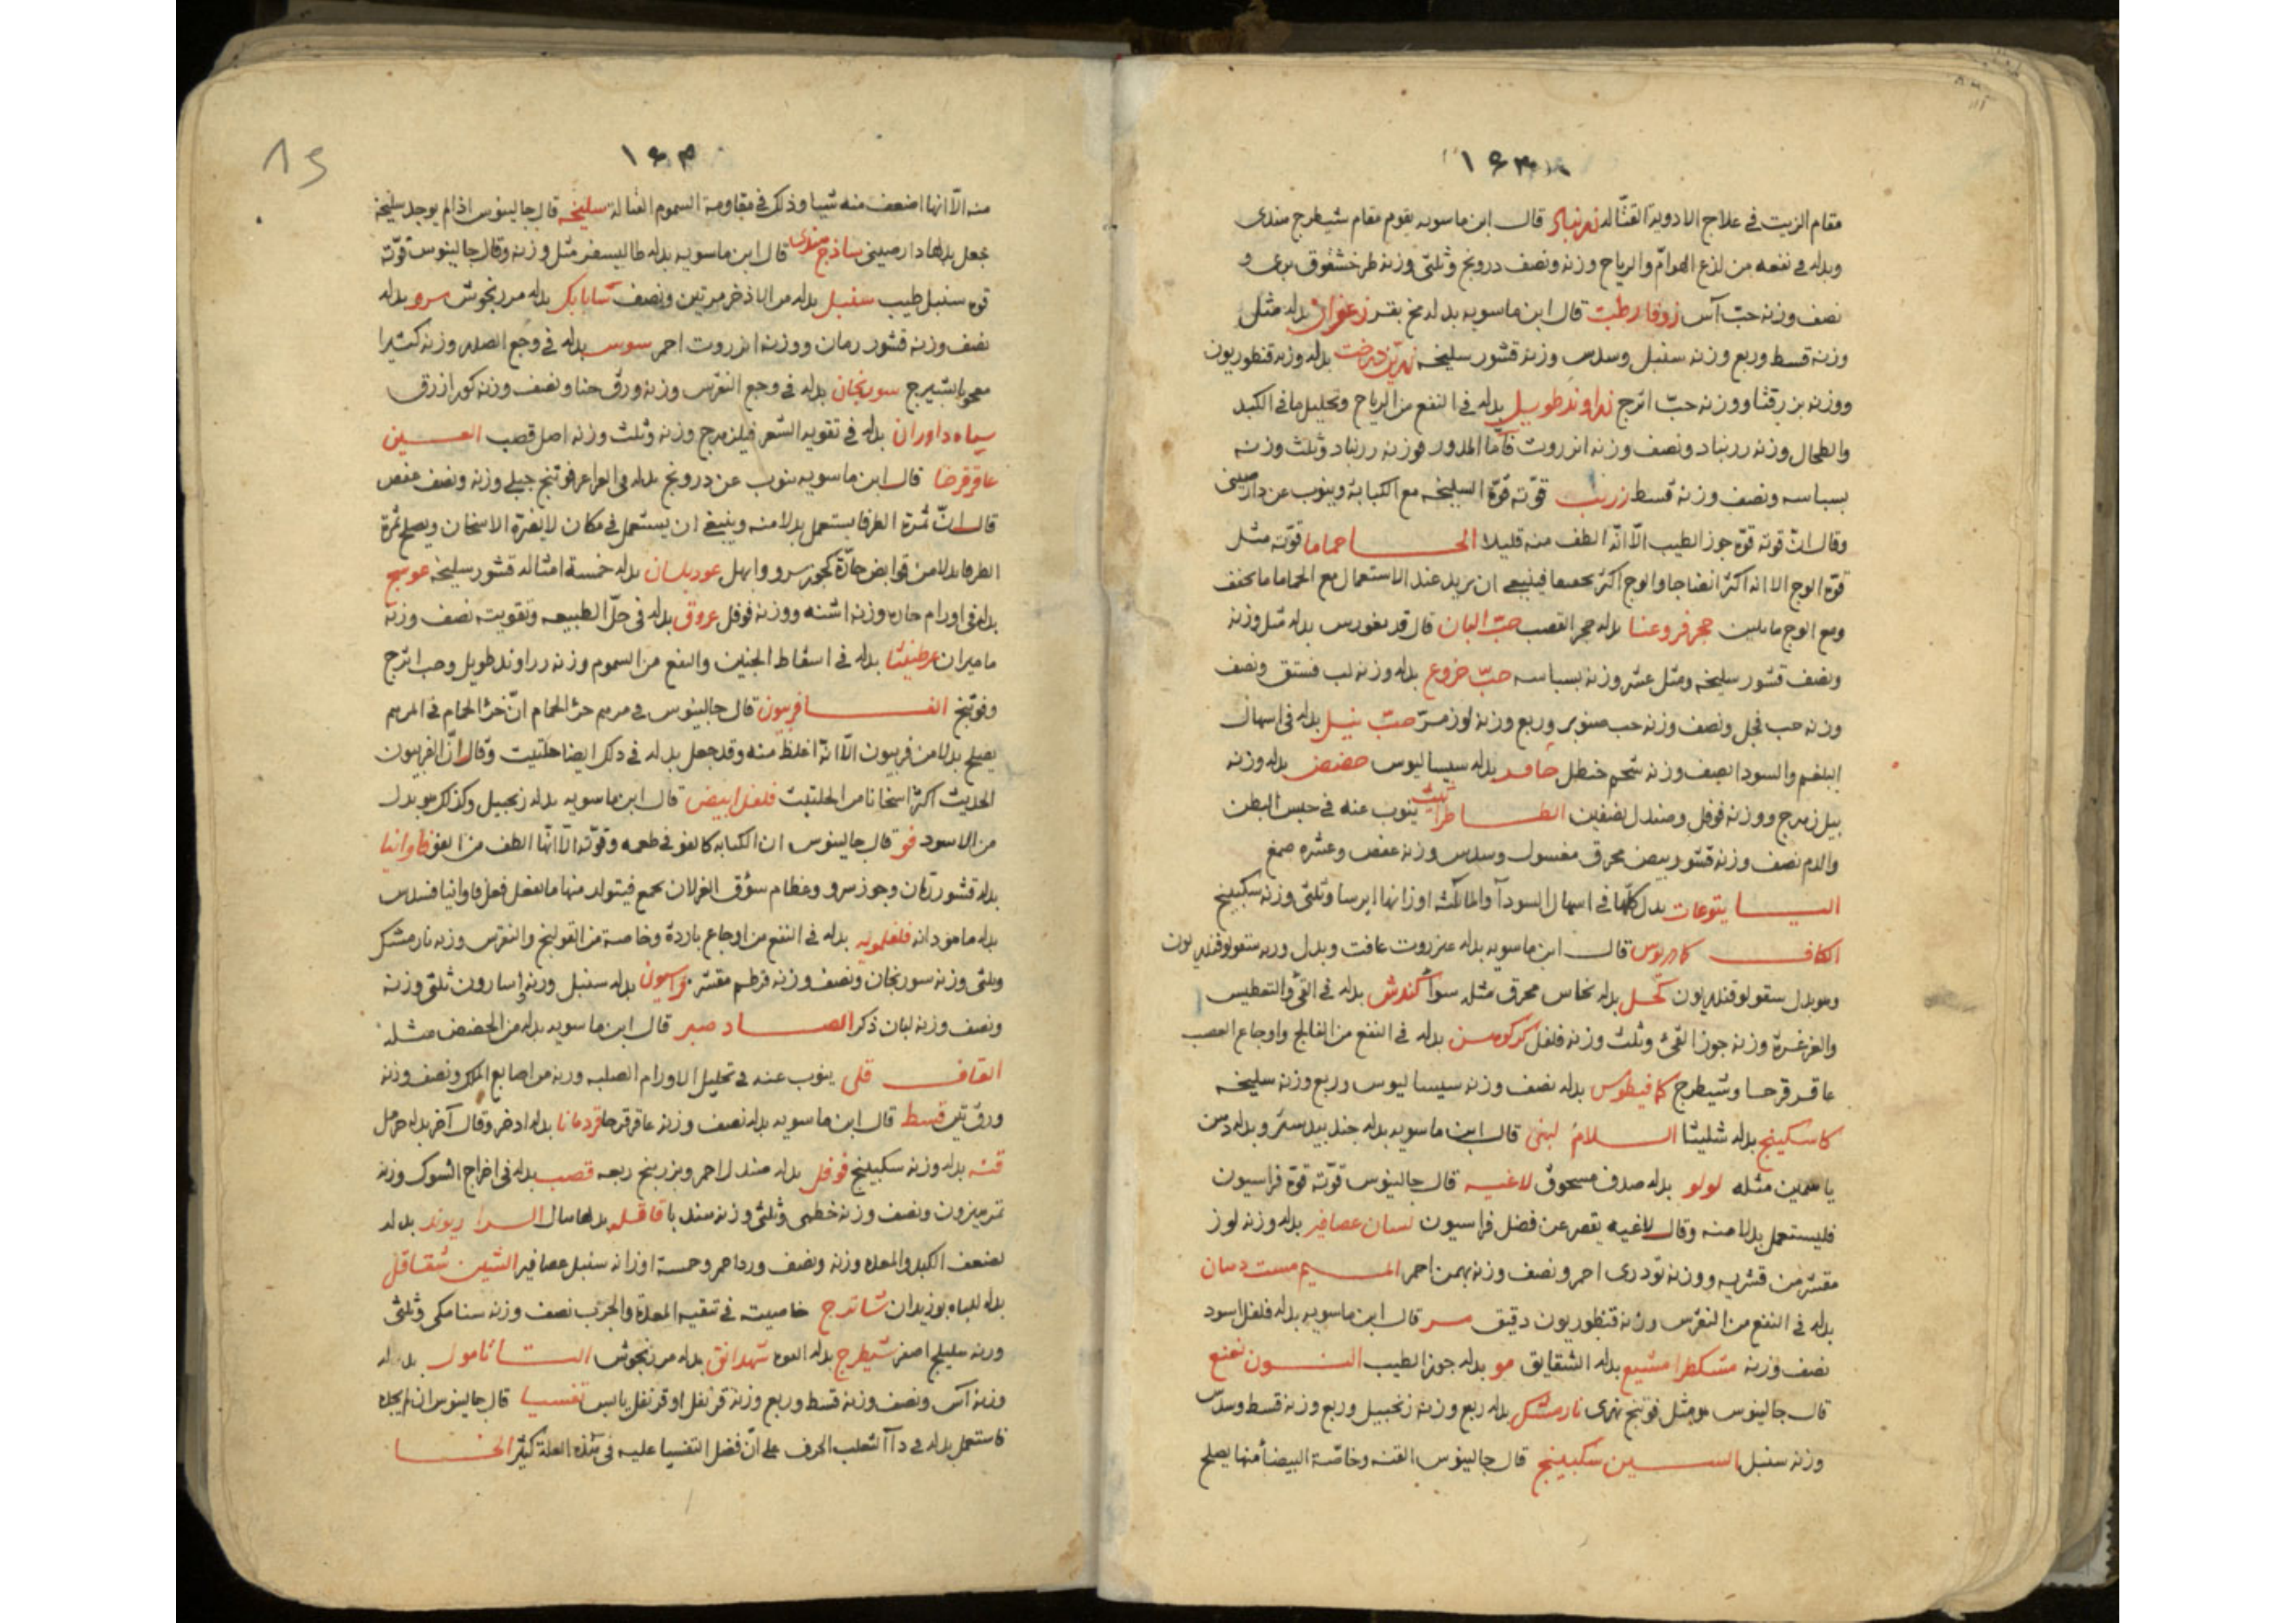 ١٦٣
مقام الزيت في علاج الادوية القتّاله زرنباد قال ابن ماسويه يقوم مقام شيطرج هندى
وبدله في نفعه من لذع الهوامّ والرياح وزنه ونصف درونج وثلثى وزنه طرخشقوق برى و
نصف وزنه حبّ آس زوفا رطب قال ابن ماسويه بدله مخ بقر زعفران بدله مثل
وزنه قسط وربع وزنه سنبل وسدس وزنه قشور سليخه بدله وزنه قنطوريون
ووزنه بزرقثا ووزنه حبّ اترج زراوند طويل بدله في النفع من الرياح وتحليل ما في الكبد
والطحال وزنه زرنباد ونصف وزنه انزروت فاما المدور فوزنه زرنباد وثلث وزنه
بسباسه ونصف وزنه قسط زرنب قوّته قوّة السليخه مع الكبابة وينوب عن دارصينى
وقال انّ قوته قوّة جوز الطيب الّا انّه الطف منه قليلا الحا حماما قوّته مثل
قوّة الوج الا انه اكثر انضاجا والوج اكثر تجفيفا فينبغى ان يزيد عند الاستعمال مع الحماما ما يجفف
ومع الوج ما يلين حجر فروعنا بدله حجر القصب حبّ البان قال بدله مثل وزنه
ونصف قشور سليخه ومثل عشر وزنه بسباسه حبّ خروع بدله وزنه لب فستق ونصف
وزنه حب فجل ونصف وزنه حب صنوبر وربع وزنه لوز مرّ حبّ نيل بدله في اسهال
البلغم والسودا نصف وزنه شحم حنظل بدله سيساليوس حضض بدله وزنه
فيلزهرج ووزنه فوفل وصندل نصفين الطا طراثيث ينوب عنه في حبس البطن
والدم نصف وزنه قشور بيض محرق مغسول وسدس وزنه عفص وعشره صمغ
اليا يتوعات بدل كلّها في اسهال السودآ والما ثلثه اوزانها ايرسا وثلثى وزنه سكبينج
الكاف كادريوس قال ابن ماسويه بدله عنزروت عافت وبدل وزنه سقولوقندريون
وهو بدل سقولوقندريون كحل بدله نحاس محرق مثله سوآ كندش بدله في القئ والتعطيس
والغرغرة وزنه جوز القئ وثلث وزنه فلفل بدله في النفع من الفالج واوجاع العصب
عاقرقرحا وشيطرج كمافيطوس بدله نصف وزنه سيساليوس وربع وزنه سليخه
كاسكينج بدله شليثا اللام لبنى قال ابن ماسويه بدله جندبيدستر وبدله دهن
ياسمين مثله لولو بدله صدف مسحوق لاغيه قال جالينوس قوّته قوّة فراسيون
فليستعمل بدلا منه وقال لاغيه يقصر عن فضل فراسيون لسان عصافير بدله وزنه لوز
مقشر من قشريه ووزنه تودرى احمر ونصف وزنه بهمن احمر الميم
بدله في النفع من النقرس وزنه قنطوريون دقيق مر قال ابن ماسويه بدله فلفل اسود
نصف وزنه مشكطرامشيع بدله الشقايق مو بدله جوز الطيب النون نعنع
قال جالينوس هو مثل فوتنج نهرى نارمشك بدله ربع وزنه زنجبيل وربع وزنه قسط وسدس
وزنه سنبل السين سكبينج قال جالينوس القنه وخاصّة البيضآ منها يصلح
١٦٤
منه الّا انها اضعف منه شيا وذلك في مقاومة السموم القتاله سليخه قال جالينوس اذا لم يوجد سليخة
نجعل بدلها دارصينى ساذج هندى قال ابن ماسويه بدله طاليسفر مثل وزنه وقال جالينوس قوّته
قوه سنبل طيب سنبل بدله من الاذخر مرتين ونصف شابابك بدله مرزنجوش سرو بدله
نصف وزنه قشور رمان ووزنه انزروت احمر سوس بدله في وجع الصدر وزنه كثيرا
معجونا بشيرج سورنجان بدله في وجع النقرس وزنه ورق حنا ونصف وزنه كور ازرق
سياه داوران بدله في تقوية الشعر فيلزهرج وزنه وثلث وزنه اصل قصب العين
عاقرقرحا قال ابن ماسويه ينوب عن درونج بدله فوتنج جبلى وزنه ونصف عفص
قال انّ ثمرة الطرفا يستعمل بدلا منه وينبغى ان يستعمل في مكان لا يضرّه الاسخان ويصلح ثمرة
الطرفا بدلا من قوابض حارّة كجوز سرو وابهل عود بلسان بدله خمسة امثاله قشور سليخه عوسج
بدله في اورام حاره وزنه اشنه ووزنه فوفل عروق بدله في حلّ الطبيعه وتقويته نصف وزنه
ماميران عرطنيثا بدله في اسقاط الجنين والنفع من السموم وزنه زراوند طويل وحب اترج
وفوتنج الفا فربيون قال جالينوس في مرهم خرؤ الحمام انّ خرؤ الحمام في المرهم
يصلح بدلا من فربيون الّا انّه اغلظ منه وقد جعل بدله في ذلك ايضا حلتيت وقال انّ الفربيون
الحديث اكثر اسخانا من الحلتيت فلفل ابيض قال ابن ماسويه بدله زنجبيل وكذلك هو بدل
من الاسود فو قال جالينوس ان الكبابه كالفو في طعمه وقوّته الّا انّها الطف من الفو فاوانيا
بدله قشور رمّان وجوز سرو وعظام سؤق الغزلان يجمع فيتولد منها ما يفعل فعل فاوانيا
بدله ماهودانه فلفلمويه بدله في النفع من اوجاع باردة وخاصة من القولنج والنقرس وزنه نارمشك
وثلثى وزنه سورنجان ونصف وزنه قرطم مقشر بدله سنبل وزنه اسارون ثلثى وزنه
ونصف وزنه لبان ذكر الصاد صبر قال ابن ماسويه بدله من الحضض مثله
القاف قلى ينوب عنه في تحليل الاورام الصلبه وزنه من اصابع الملك ونصف وزنه
ورق تين قسط قال ابن ماسويه بدله نصف وزنه عاقرقرحا قردمانا بدله اذخر وقال آخر بدله حرمل
قنه بدله وزنه سكبينج فوفل بدله صندل احمر وبزر بنج ربعه قصب بدله في اخراج الشوك وزنه
ونصف وزنه خطمى وثلثى وزنه سندبا قاقله بدلها سال الرا ريوند بدله
لضعف الكبد والمعده وزنه ونصف ورد احمر وخمسة اوزانه سنبل عصافير الشين شقاقل
بدله للباه بوزيدان شاترج خاصيته في تنقيه المعدة والجرب نصف وزنه سنامكى وثلثى
وزنه هليلج اصفر شيطرج بدله الفوه شهدانق بدله مرزنجوش التا تامول بدله
وزنه آس ونصف وزنه قسط وربع وزنه قرنفل او قرنفل يابس تفسيا قال جالينوس ان لم يجده
فاستعمل بدله في دآ الثعلب الحرف على انّ فضل التفسيا عليه في هذه العلة كثير الخا